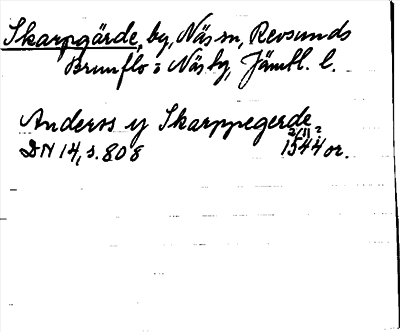 Skarpgärde, by, Näs sn, Revsunds
Brunflo o Näs tg, Jämtl. l.
Anderss y Skarppegerde
2/11 ?
DN 14, s. 808 1544 or.